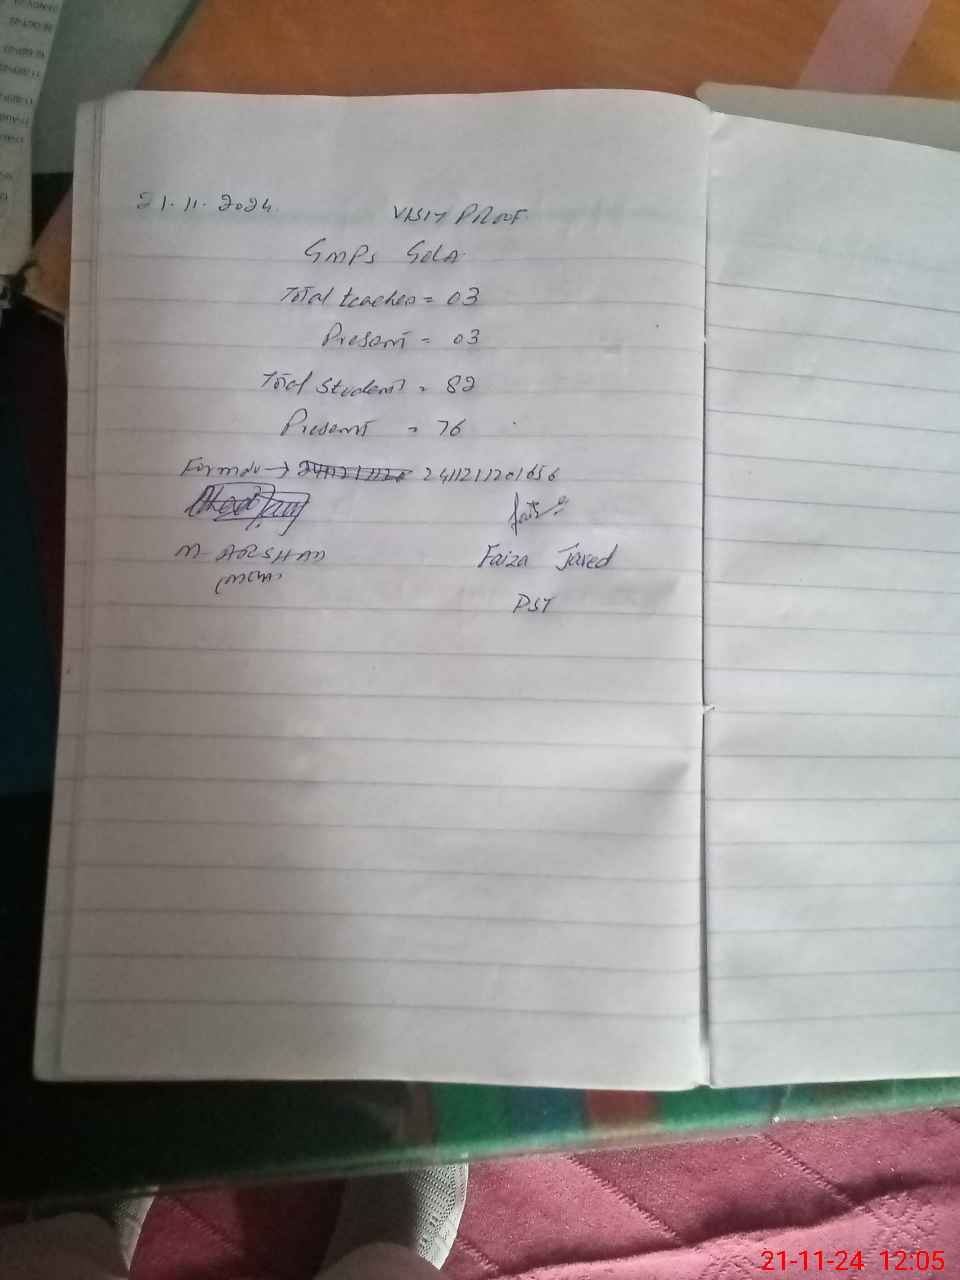 21.11.2024. VISIT PROOF
GMPS GOLA
Total teacher = 03
Present = 03
Total Student = 82
Present = 76
2411211201656
M. ARSHAD
(MEA)
Faiza Javed
PST
21-11-24 12:05